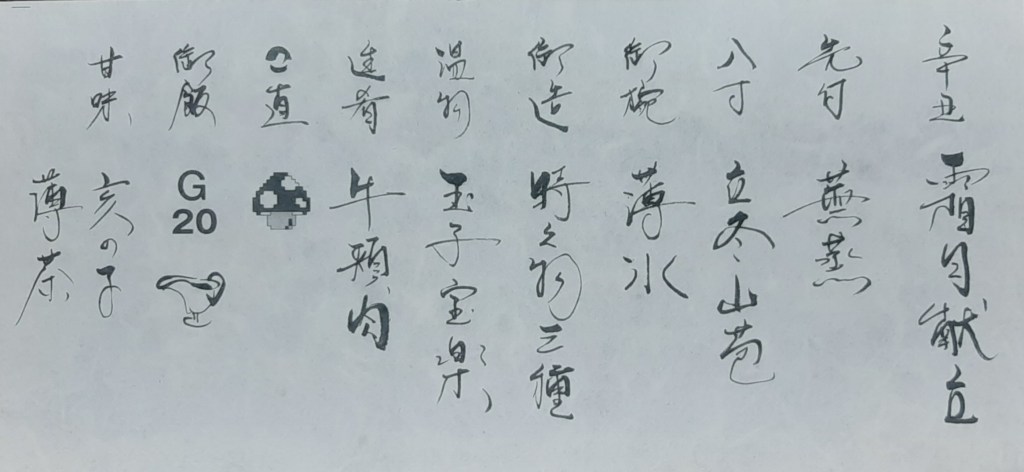 辛丑 霜月献立
先付 蕪蒸
八寸 立冬山苞
御椀 薄氷
御造 時之物三種
温物 玉子宝楽
進肴 牛頬肉
直
御飯 G20
甘味 亥の子
薄茶